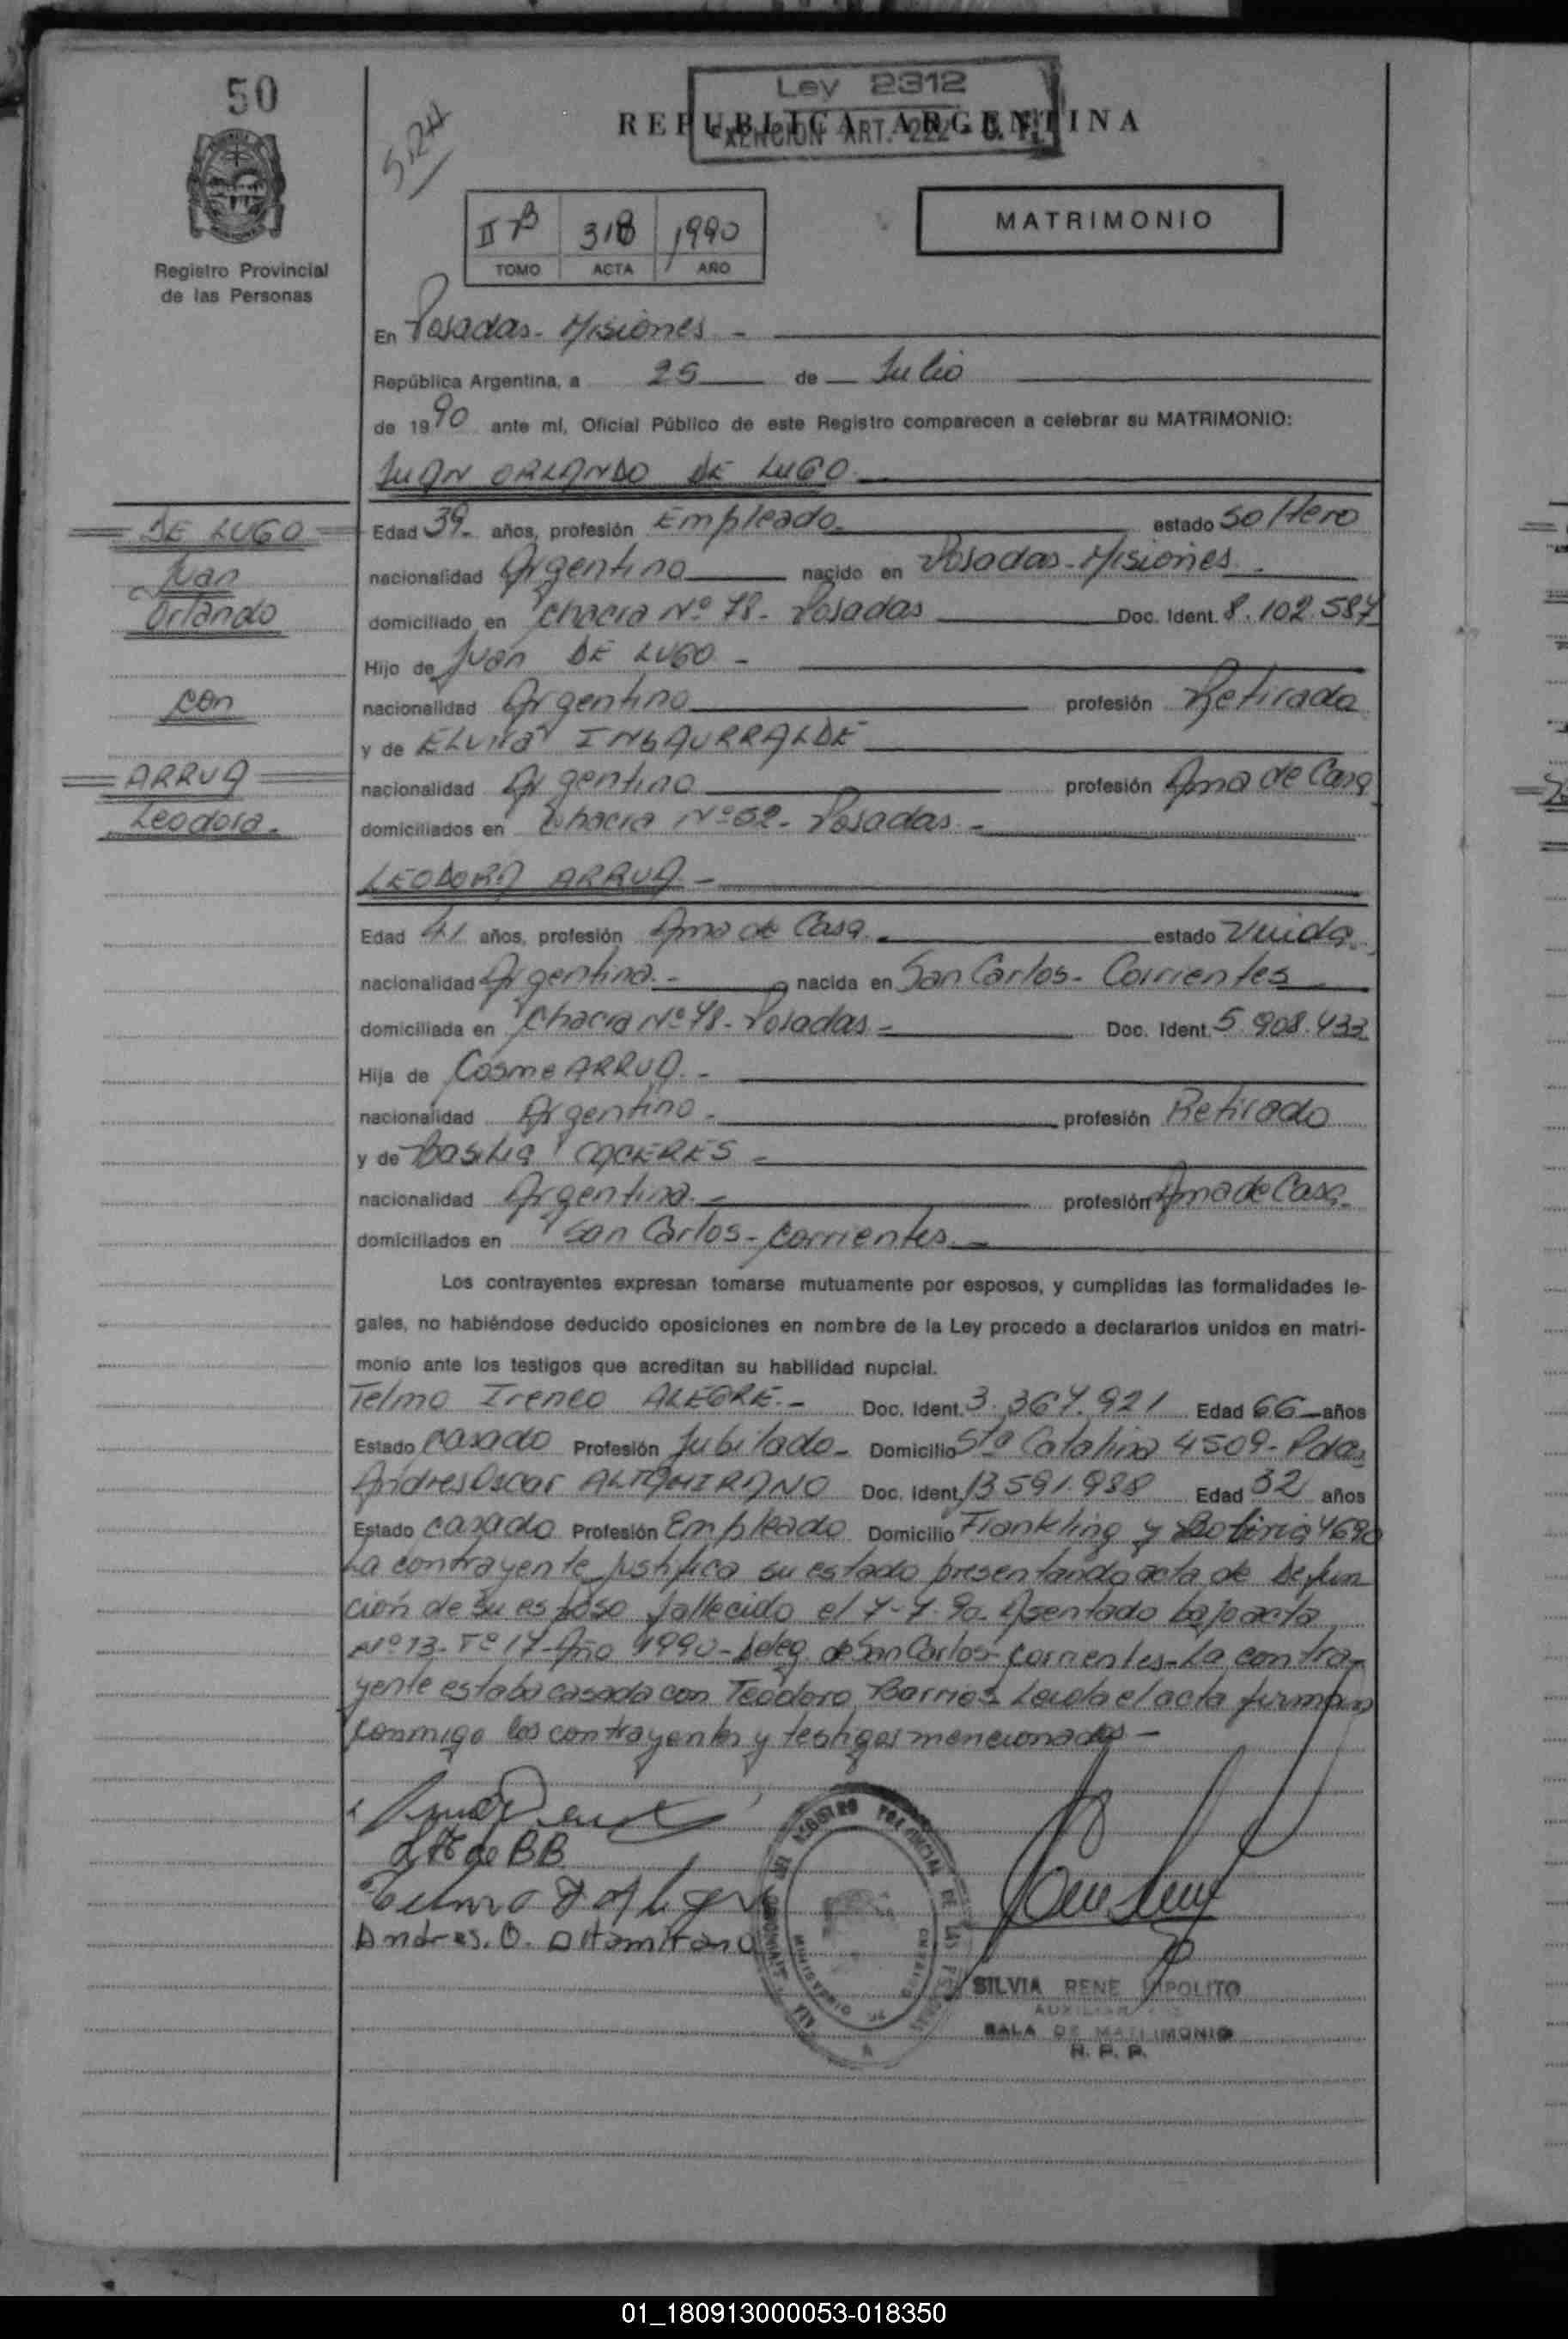 50
Ley 2312
REPUBLICA ARGENTINA
EXENCION ART. 222
Registro Provincial
de las Personas
II B 318 1990
TOMO ACTA AÑO
MATRIMONIO
En Posadas - Misiones -
República Argentina, a 25 de Julio
de 1990 ante mí, Oficial Público de este Registro comparecen a celebrar su MATRIMONIO:
JUAN ORLANDO DE LUGO.
DE LUGO
Juan
Orlando
con
ARRUA
Leodora.
Edad 39 años, profesión Empleado estado Soltero
nacionalidad Argentino nacido en Posadas - Misiones
domiciliado en Chacra Nº 78 - Posadas Doc. Ident. 8.102.587
Hijo de Juan DE LUGO -
nacionalidad Argentino profesión Retirado
y de ELvira INSAURRALDE
nacionalidad Argentina profesión Ama de Casa
domiciliados en Chacra Nº 52 - Posadas -
LEODORA ARRUA -
Edad 41 años, profesión Ama de Casa. estado Viuda.
nacionalidad Argentina.- nacida en San Carlos - Corrientes
domiciliada en Chacra Nº 78 - Posadas - Doc. Ident. 5.908.433
Hija de Cosme ARRUA. -
nacionalidad Argentino - profesión Retirado
y de Basilia CACERES -
nacionalidad Argentina. - profesión Ama de Casa.
domiciliados en San Carlos - Corrientes. -
Los contrayentes expresan tomarse mutuamente por esposos, y cumplidas las formalidades le-
gales, no habiéndose deducido oposiciones en nombre de la Ley procedo a declararlos unidos en matri-
monio ante los testigos que acreditan su habilidad nupcial.
Telmo Ireneo ALEGRE.- Doc. Ident. 3.367.921 Edad 66 años
Estado casado Profesión Jubilado - Domicilio Sta Catalina 4509 - Pdas
Andres Oscar ALTAMIRANO Doc. Ident. 13.591.988 Edad 32 años
Estado casado Profesión Empleado Domicilio Frankling y Bolivia 4690
La contrayente justifica su estado presentando acta de Defun
ción de su esposo fallecido el 7-7-90. Asentado bajo acta
Nº 13 - Tº 17 - Año 1990 - Deleg. de San Carlos - Corrientes - La contra-
yente estaba casada con Teodoro Barrios. Leida el acta firman
conmigo los contrayentes y testigos mencionados -
Andres. O. Altamirano
SILVIA RENE HIPOLITO
AUXILIAR
SALA DE MATRIMONIO
R. P. P.
01_180913000053-018350